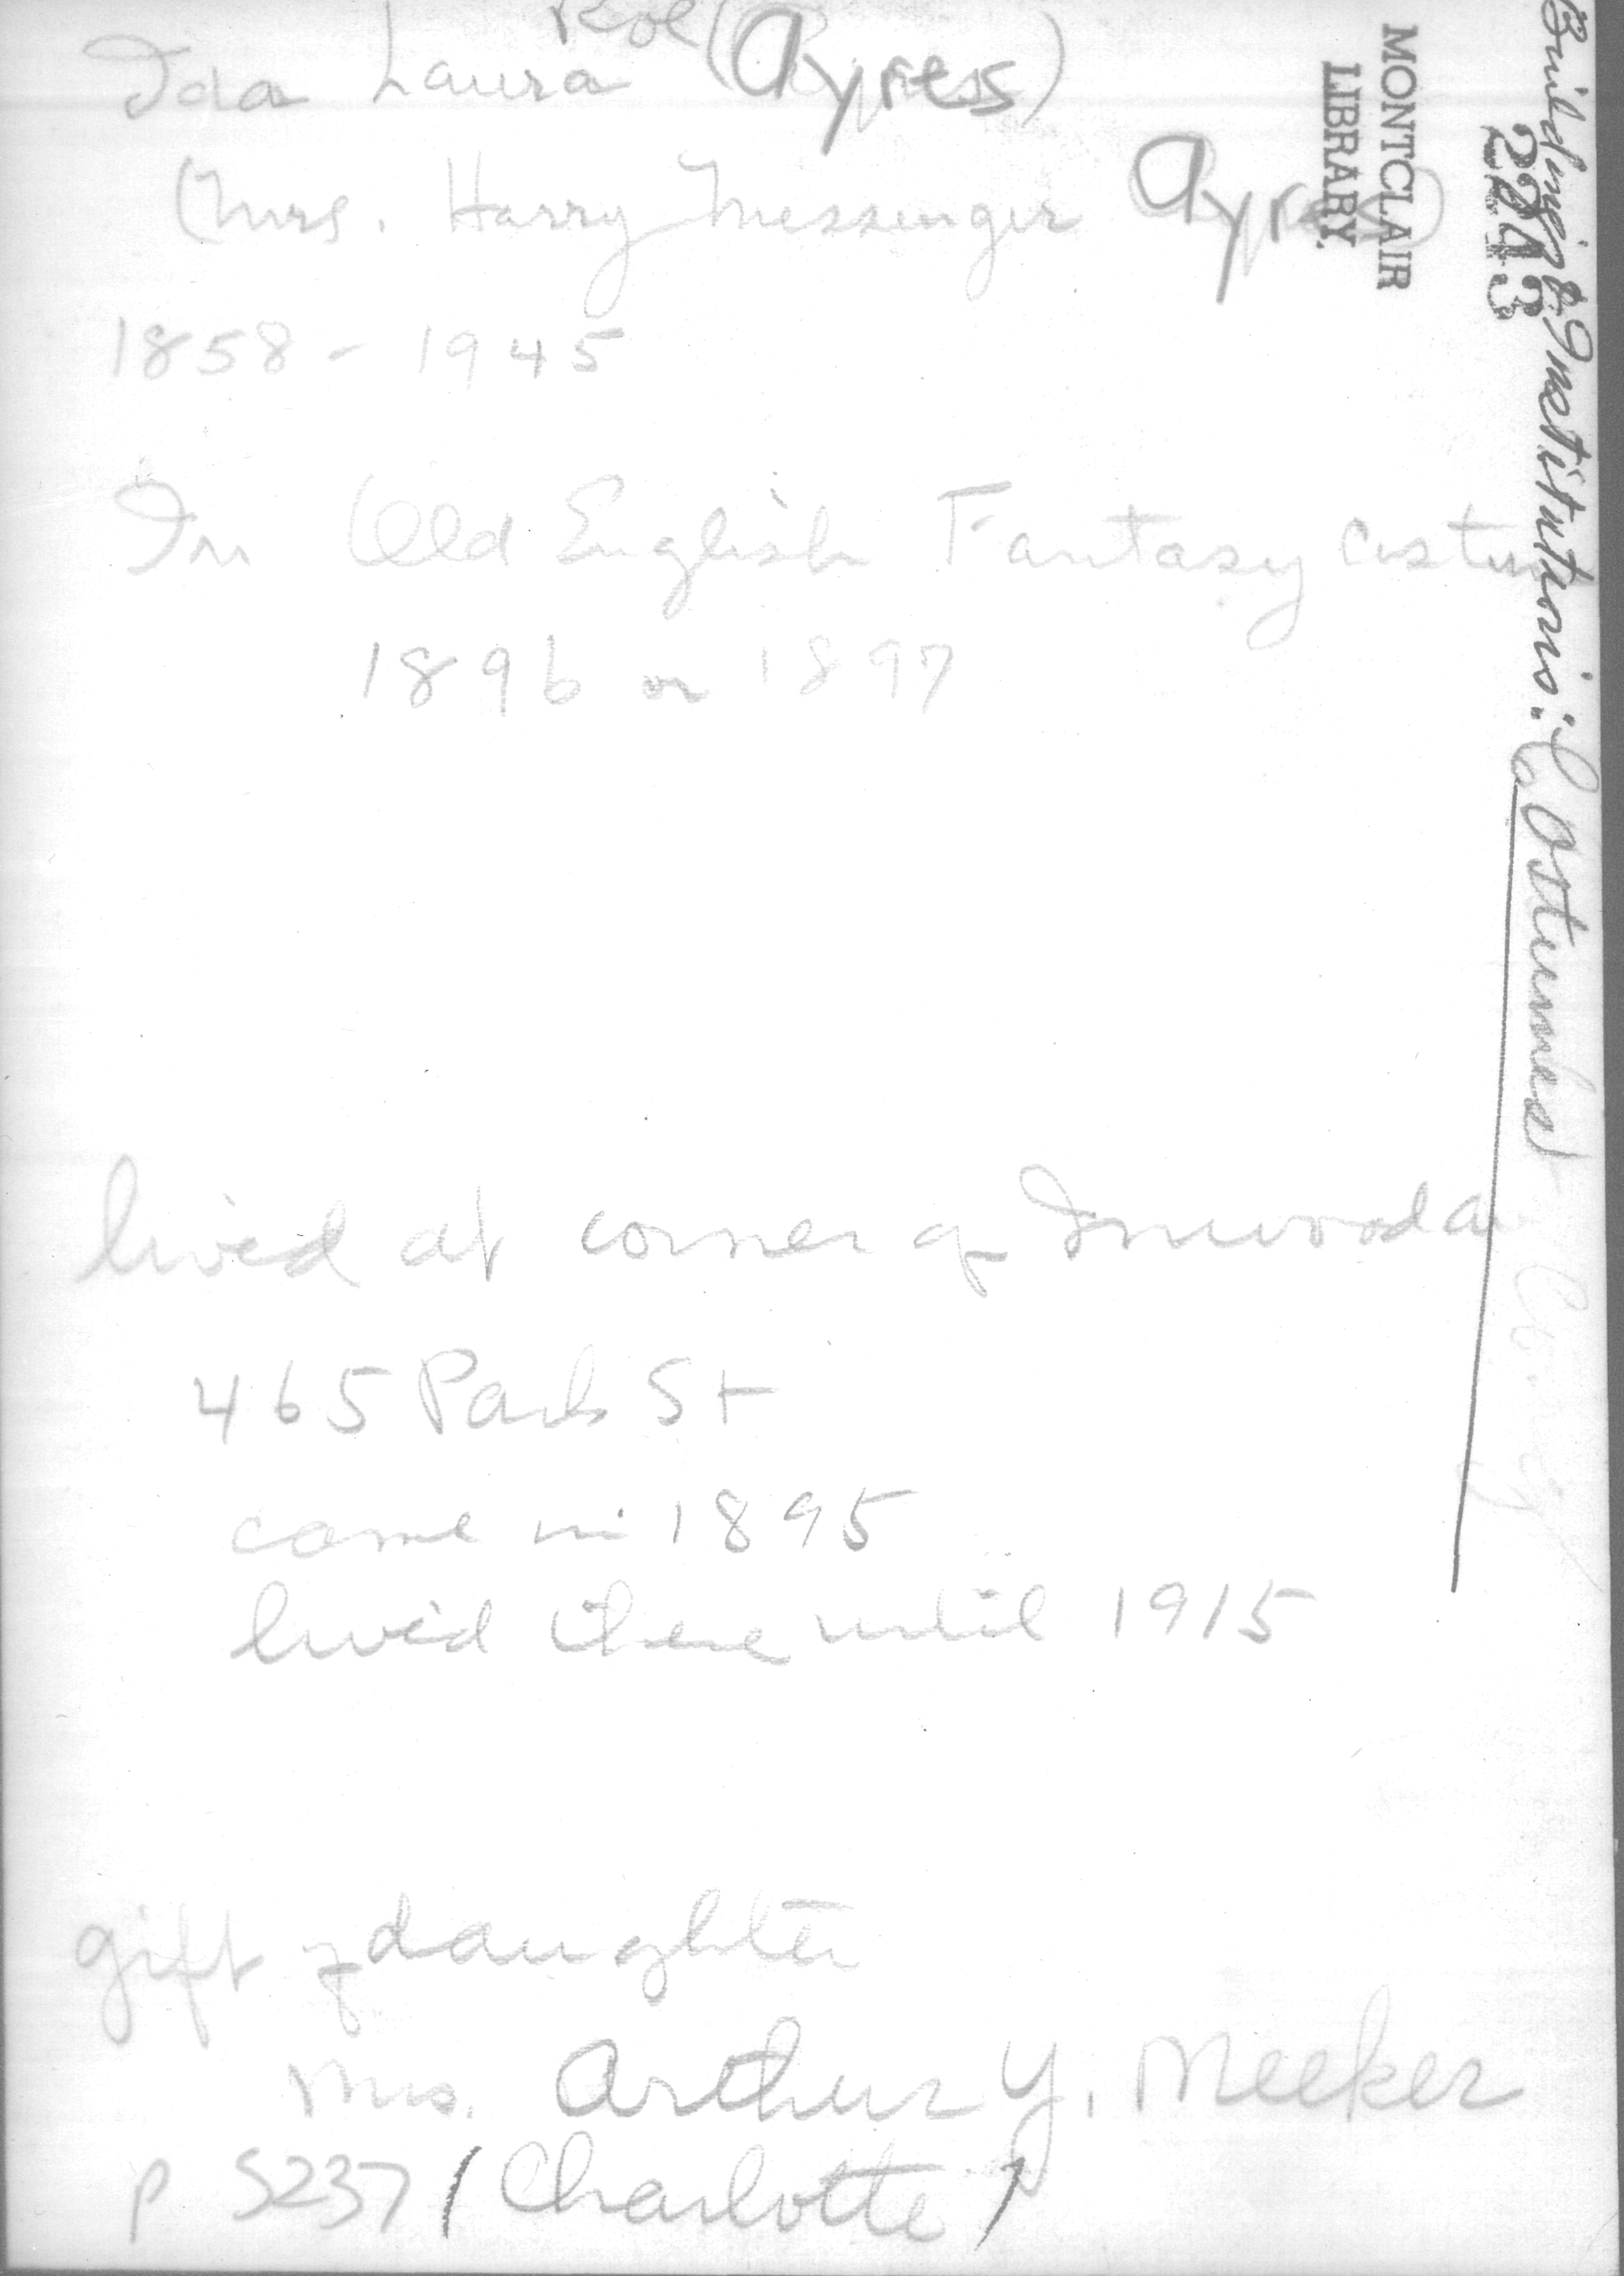 Roe
Ida Laura (Ayres)
(Mrs. Harry Messenger Ayres)
1858 - 1945
In Old English Fantasy Costu
1896 or 1897
lived at corner of Inwood Av
465 Park St
came in 1895
lived there until 1915
gift of daughter
Mrs. Arthur Y. Meeker
p 5237 (Charlotte)
MONTCLAIR
LIBRARY.
2243
Buildings & Institutions: Costumes